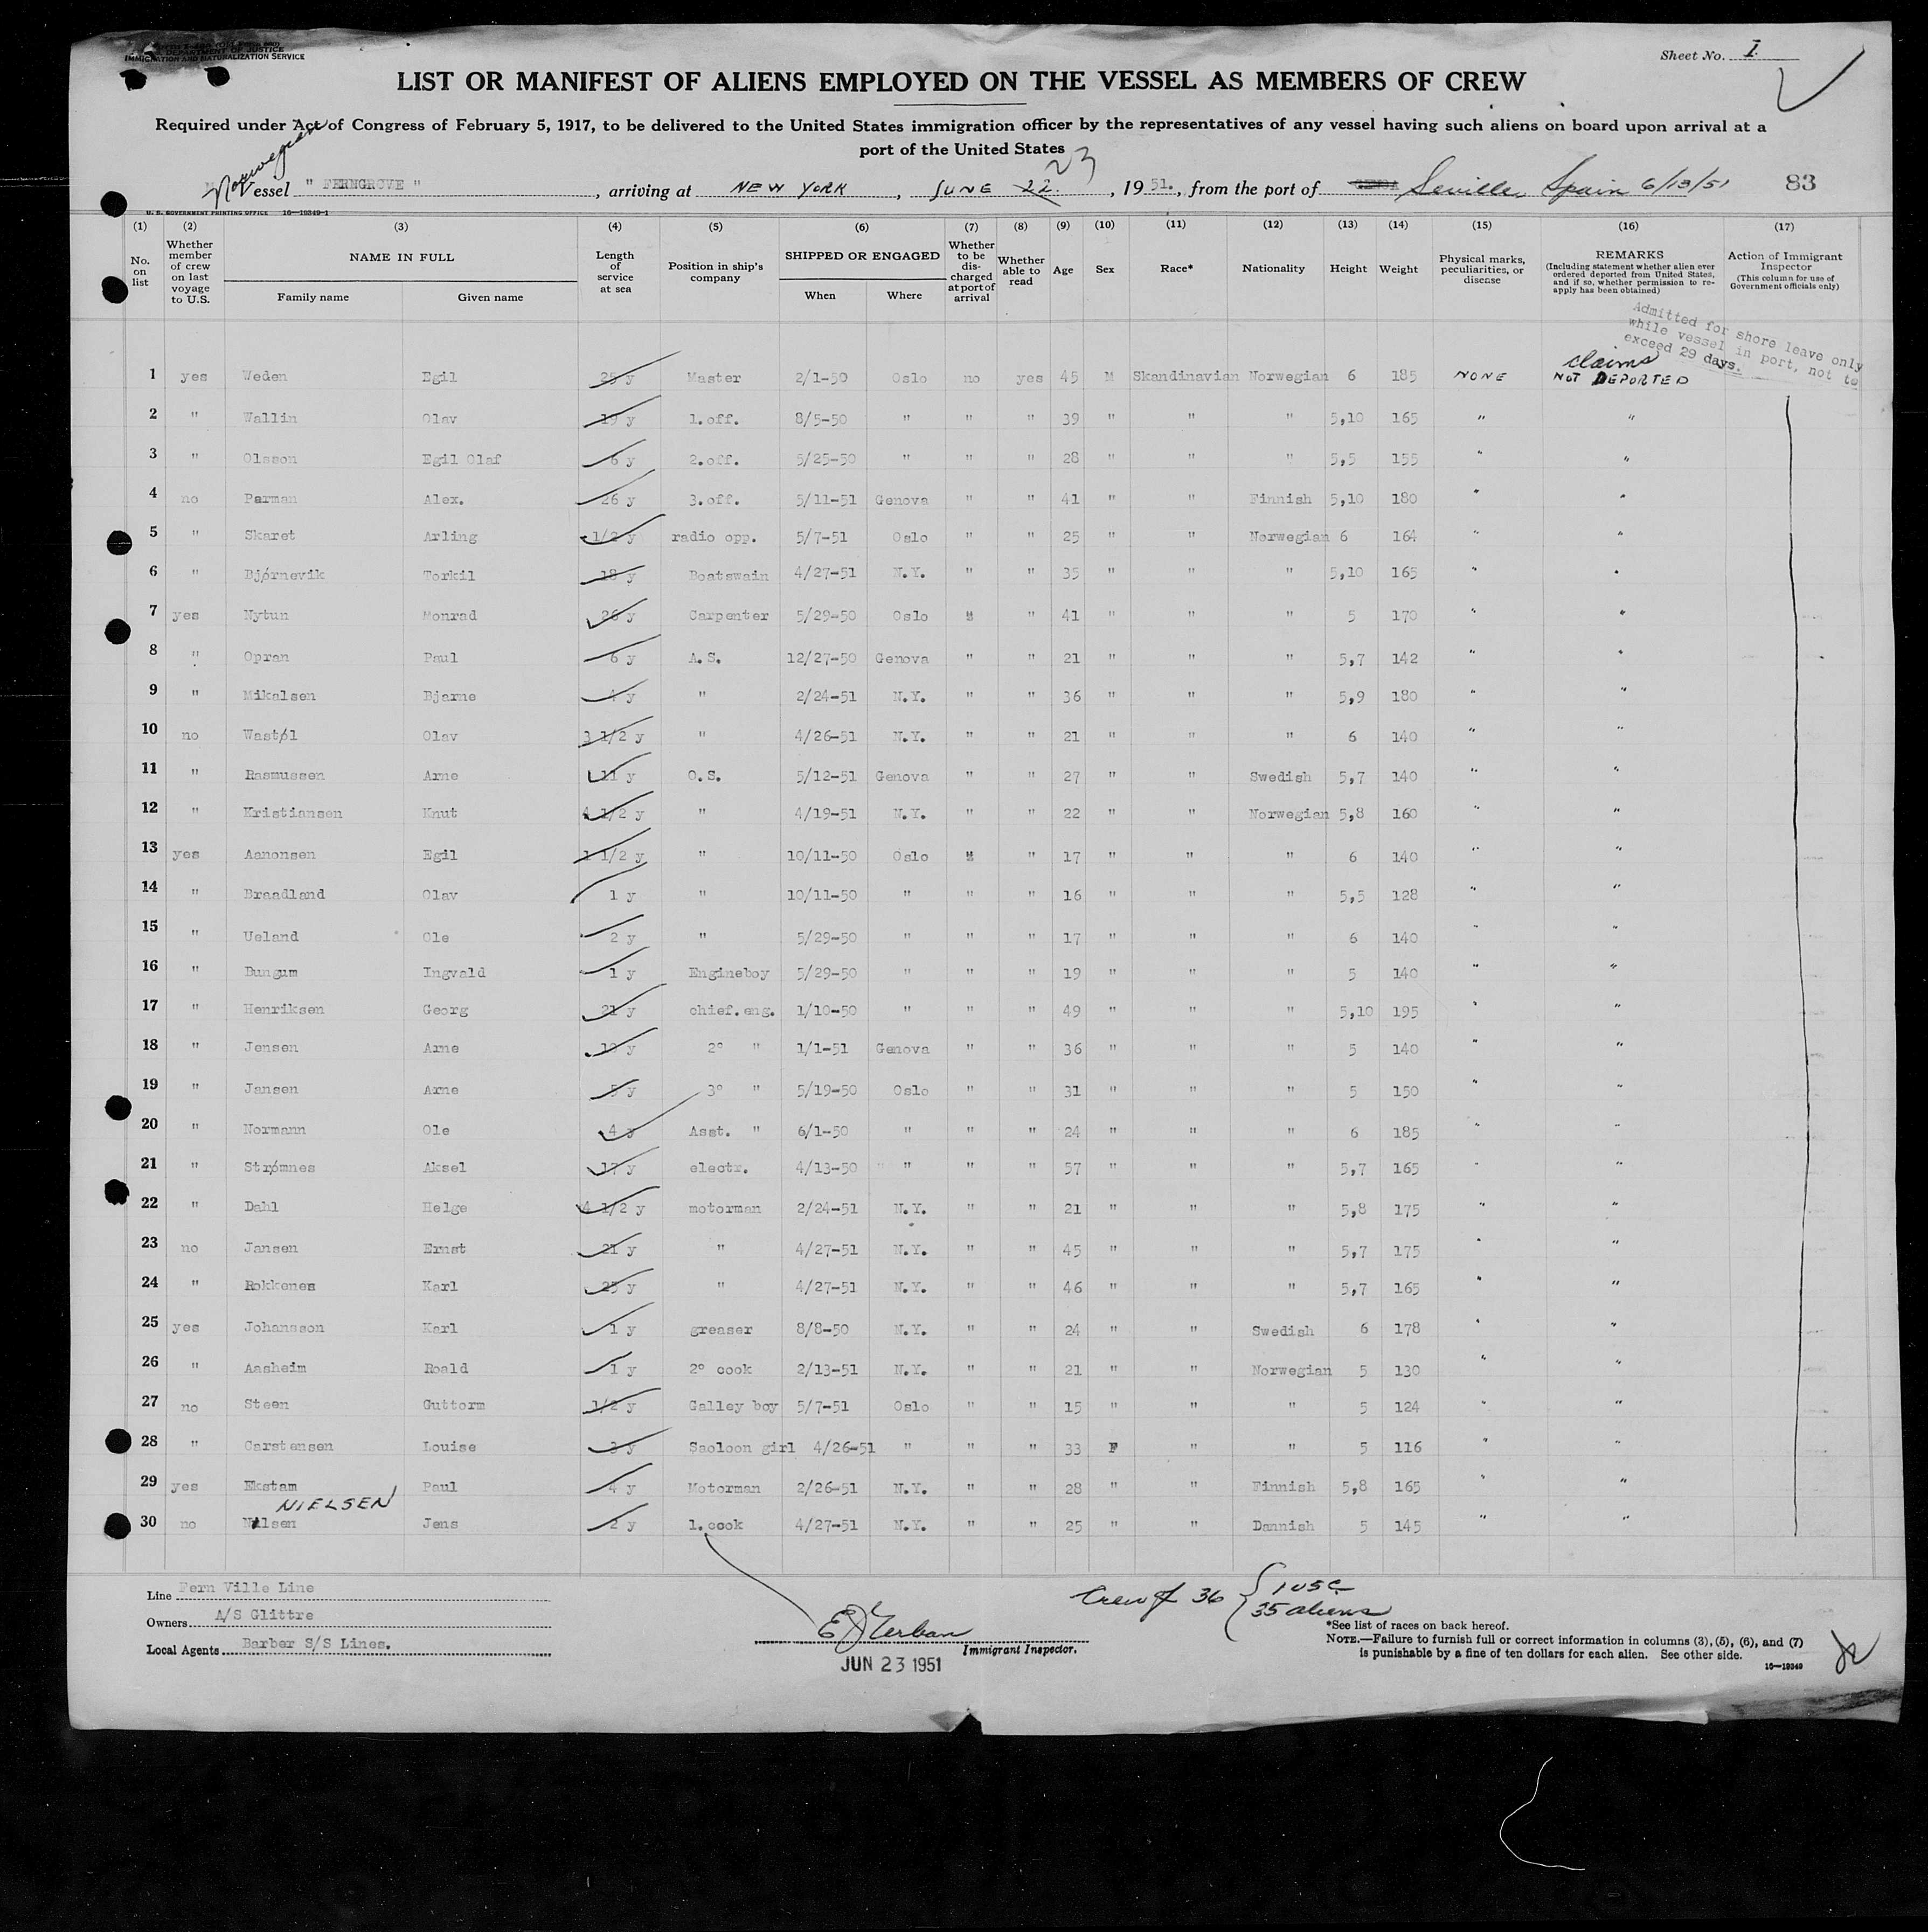 DEPARTMENT OF JUSTICE
IMMIGRATION AND NATURALIZATION SERVICE
Sheet No. I
LIST OR MANIFEST OF ALIENS EMPLOYED ON THE VESSEL AS MEMBERS OF CREW
Required under Act of Congress of February 5, 1917, to be delivered to the United States immigration officer by the representatives of any vessel having such aliens on board upon arrival at a
port of the United States
Norwegian
23
Vessel " FERNGROVE ", arriving at NEW YORK, JUNE 22, 1951., from the port of Seville, Spain 6/13/51 83
U. S. GOVERNMENT PRINTING OFFICE 16—19349-1
(1) (2) (3) (4) (5) (6) (7) (8) (9) (10) (11) (12) (13) (14) (15) (16) (17)
No. on list
Whether member of crew on last voyage to U.S.
NAME IN FULL
Family name
Given name
Length of service at sea
Position in ship's company
SHIPPED OR ENGAGED
When
Where
Whether to be discharged at port of arrival
Whether able to read
Age
Sex
Race*
Nationality
Height
Weight
Physical marks, peculiarities, or disease
REMARKS
(Including statement whether alien ever ordered deported from United States, and if so, whether permission to re-apply has been obtained)
Action of Immigrant Inspector
(This column for use of Government officials only)
Admitted for shore leave only
while vessel in port, not to
exceed 29 days.
claims
1 yes Weden Egil 25 y Master 2/1-50 Oslo no yes 45 M Skandinavian Norwegian 6 185 NONE NOT DEPORTED
2 " Wallin Olav 19 y 1.off. 8/5-50 " " " 39 " " " 5,10 165 " "
3 " Olsson Egil Olaf 6 y 2.off. 5/25-50 " " " 28 " " " 5,5 155 " "
4 no Parman Alex. 26 y 3.off. 5/11-51 Genova " " 41 " " Finnish 5,10 180 " "
5 " Skaret Arling 1/2 y radio opp. 5/7-51 Oslo " " 25 " " Norwegian 6 164 " "
6 " Bjørnevik Torkil 18 y Boatswain 4/27-51 N.Y. " " 35 " " " 5,10 165 " "
7 yes Nytun Monrad 26 y Carpenter 5/29-50 Oslo " " 41 " " " 5 170 " "
8 " Opran Paul 6 y A.S. 12/27-50 Genova " " 21 " " " 5,7 142 " "
9 " Mikalsen Bjarne 4 y " 2/24-51 N.Y. " " 36 " " " 5,9 180 " "
10 no Wastøl Olav 3 1/2 y " 4/26-51 N.Y. " " 21 " " " 6 140 " "
11 " Rasmussen Arne 11 y O.S. 5/12-51 Genova " " 27 " " Swedish 5,7 140 " "
12 " Kristiansen Knut 4 1/2 y " 4/19-51 N.Y. " " 22 " " Norwegian 5,8 160 " "
13 yes Aanonsen Egil 1 1/2 y " 10/11-50 Oslo " " 17 " " " 6 140 " "
14 " Braadland Olav 1 y " 10/11-50 " " " 16 " " " 5,5 128 " "
15 " Ueland Ole 2 y " 5/29-50 " " " 17 " " " 6 140 " "
16 " Bungum Ingvald 1 y Engineboy 5/29-50 " " " 19 " " " 5 140 " "
17 " Henriksen Georg 21 y chief.eng. 1/10-50 " " " 49 " " " 5,10 195 " "
18 " Jensen Arne 19 y 2º " 1/1-51 Genova " " 36 " " " 5 140 " "
19 " Jansen Arne 5 y 3º " 5/19-50 Oslo " " 31 " " " 5 150 " "
20 " Normann Ole 4 y Asst. " 6/1-50 " " " 24 " " " 6 185 " "
21 " Strømnes Aksel 17 y electr. 4/13-50 " " " 57 " " " 5,7 165 " "
22 " Dahl Helge 4 1/2 y motorman 2/24-51 N.Y. " " 21 " " " 5,8 175 " "
23 no Jansen Ernst 21 y " 4/27-51 N.Y. " " 45 " " " 5,7 175 " "
24 " Rokkenes Karl 25 y " 4/27-51 N.Y. " " 46 " " " 5,7 165 " "
25 yes Johansson Karl 1 y greaser 8/8-50 N.Y. " " 24 " " Swedish 6 178 " "
26 " Aasheim Roald 1 y 2º cook 2/13-51 N.Y. " " 21 " " Norwegian 5 130 " "
27 no Steen Guttorm 1/2 y Galley boy 5/7-51 Oslo " " 15 " " " 5 124 " "
28 " Carstensen Louise 3 y Saoloon girl 4/26-51 " " " 33 F " " 5 116 " "
29 yes Ekstam Paul 4 y Motorman 2/26-51 N.Y. " " 28 " " Finnish 5,8 165 " "
NIELSEN
30 no Nilsen Jens 2 y 1.cook 4/27-51 N.Y. " " 25 " " Dannish 5 145 " "
Line Fern Ville Line
Owners A/S Glittre
Local Agents Barber S/S Lines.
Immigrant Inspector.
JUN 23 1951
Crew of 36 { 1 USC
35 aliens
*See list of races on back hereof.
NOTE.—Failure to furnish full or correct information in columns (3), (5), (6), and (7)
is punishable by a fine of ten dollars for each alien. See other side.
16—19349